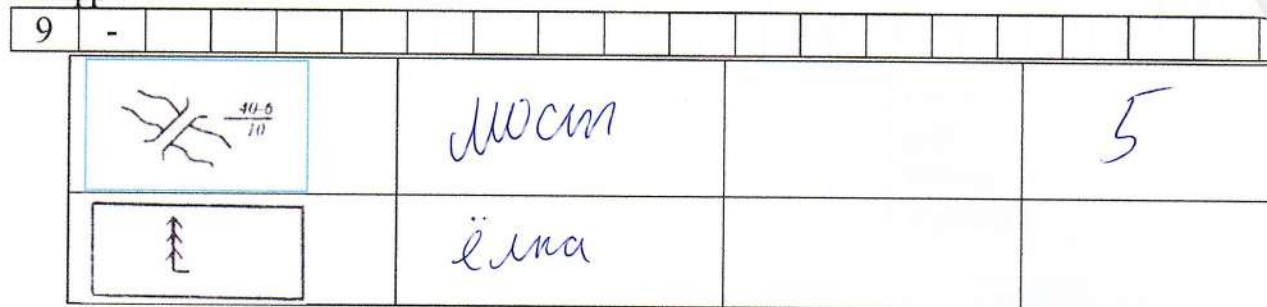 9 -
40-6
10
мост 5
ёлка